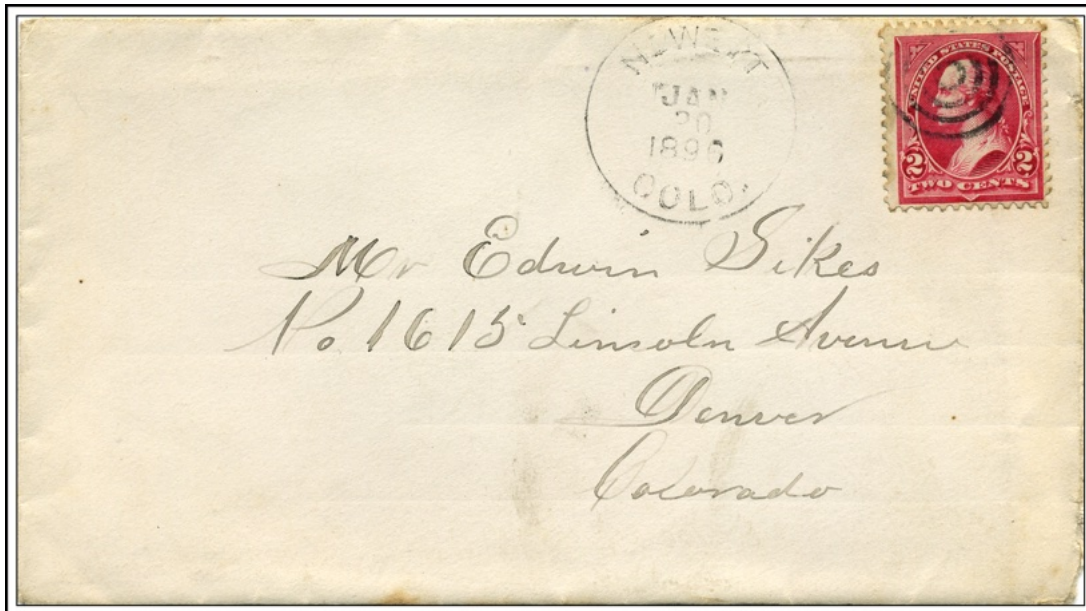 NEWETT
JAN
20
1896
COLO.
UNITED STATES POSTAGE
2 2
TWO CENTS
Mr Edwin Sikes
No 1615 Lincoln Avenue
Denver
Colorado